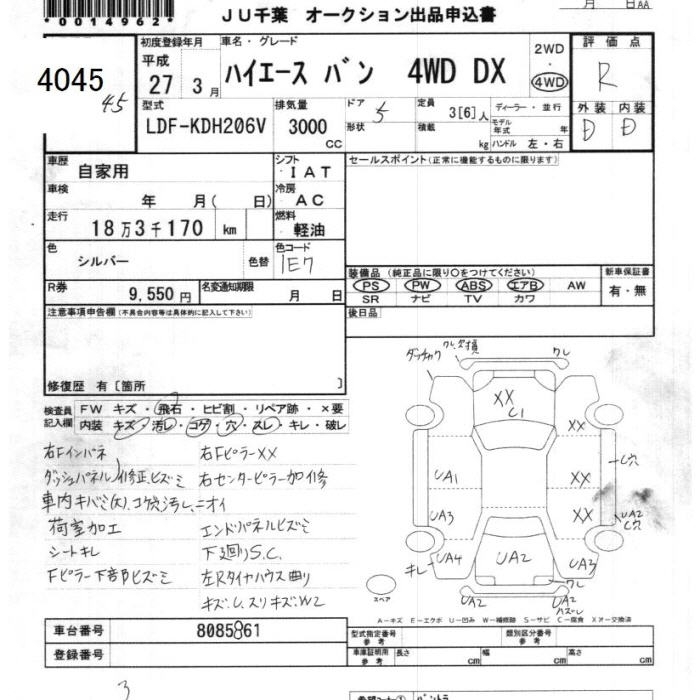 *0014962*
JU千葉 オークション出品申込書
月 日AA
4045
45
初度登録年月
平成
27 3月
車名・グレード
ハイエース バン 4WD DX
2WD
・
4WD
評価点
R
型式
LDF-KDH206V
排気量
3000
CC
ドア
5
形状
定員
3[6]人
積載
kg
ディーラー・並行
モデル年式 年
ハンドル 左・右
外装 内装
D D
車歴
自家用
シフト
IAT
セールスポイント(正常に機能するものに限ります)
車検
年 月( 日)
冷房
AC
走行
18万3千170 km
燃料
軽油
色
シルバー
色替
色コード
1E7
装備品(純正品に限り〇をつけてください)
新車保証書
PS PW ABS エアB AW
有・無
SR ナビ TV カワ
R券
9,550円
名変通知期限
月 日
後日品
注意事項申告欄(不具合内容等は具体的に記入して下さい)
修復歴 有〔箇所 〕
検査員記入欄
FW キズ・飛石・ヒビ割・リペア跡・×要
内装 キズ・汚レ・コゲ・穴・スレ・キレ・破レ
右Fインパネ
右FピラーXX
ダッシュパネル 修正、ヒズミ
右センターピラー加修
車内キバミ(大)、コゲ穴汚レ、ニオイ
荷室加工
エンドパネルヒズミ
シートキレ
下廻りS.C.
Fピラー下部ヒズミ
左Rタイヤハウス曲り
キズ、U、スリキズ、W2
ダッチャク
ワレ、ズ損
ワレ
XX
C1
XX
UA1
XX
C穴
UA3
XX
UA2
C穴
キレ
UA4
UA2
UA3
ワレ
UA2
UA2
ハズレ
スペア
A－キズ E－エクボ U－凹み W－補修跡 S－サビ C－腐食 X－交換済
車台番号
8085861
登録番号
型式指定番号
参考
類別区分番号
参考
車庫証明用
参考
長さ cm
幅 cm
高さ cm
3